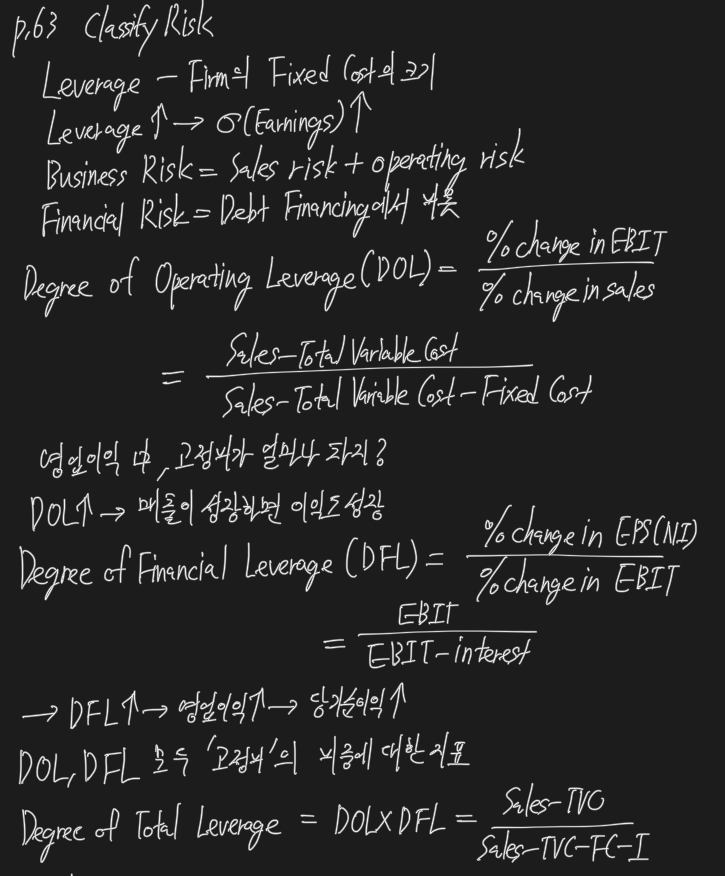 p.63 Classify Risk
Leverage - Firm의 Fixed Cost의 크기
Leverage ↑ → σ(Earnings) ↑
Business Risk = Sales risk + operating risk
Financial Risk = Debt Financing에서 비롯
Degree of Operating Leverage (DOL) = % change in EBIT / % change in sales
= Sales-Total Variable Cost / Sales-Total Variable Cost-Fixed Cost
영업이익 中, 고정비가 얼마나 차지?
DOL↑ → 매출이 성장하면 이익도 성장
Degree of Financial Leverage (DFL) = % change in EPS(NI) / % change in EBIT
= EBIT / EBIT-interest
→ DFL↑ → 영업이익↑ → 당기순이익↑
DOL, DFL 모두 '고정비'의 비중에 대한 지표
Degree of Total Leverage = DOL×DFL = Sales-TVC / Sales-TVC-FC-I